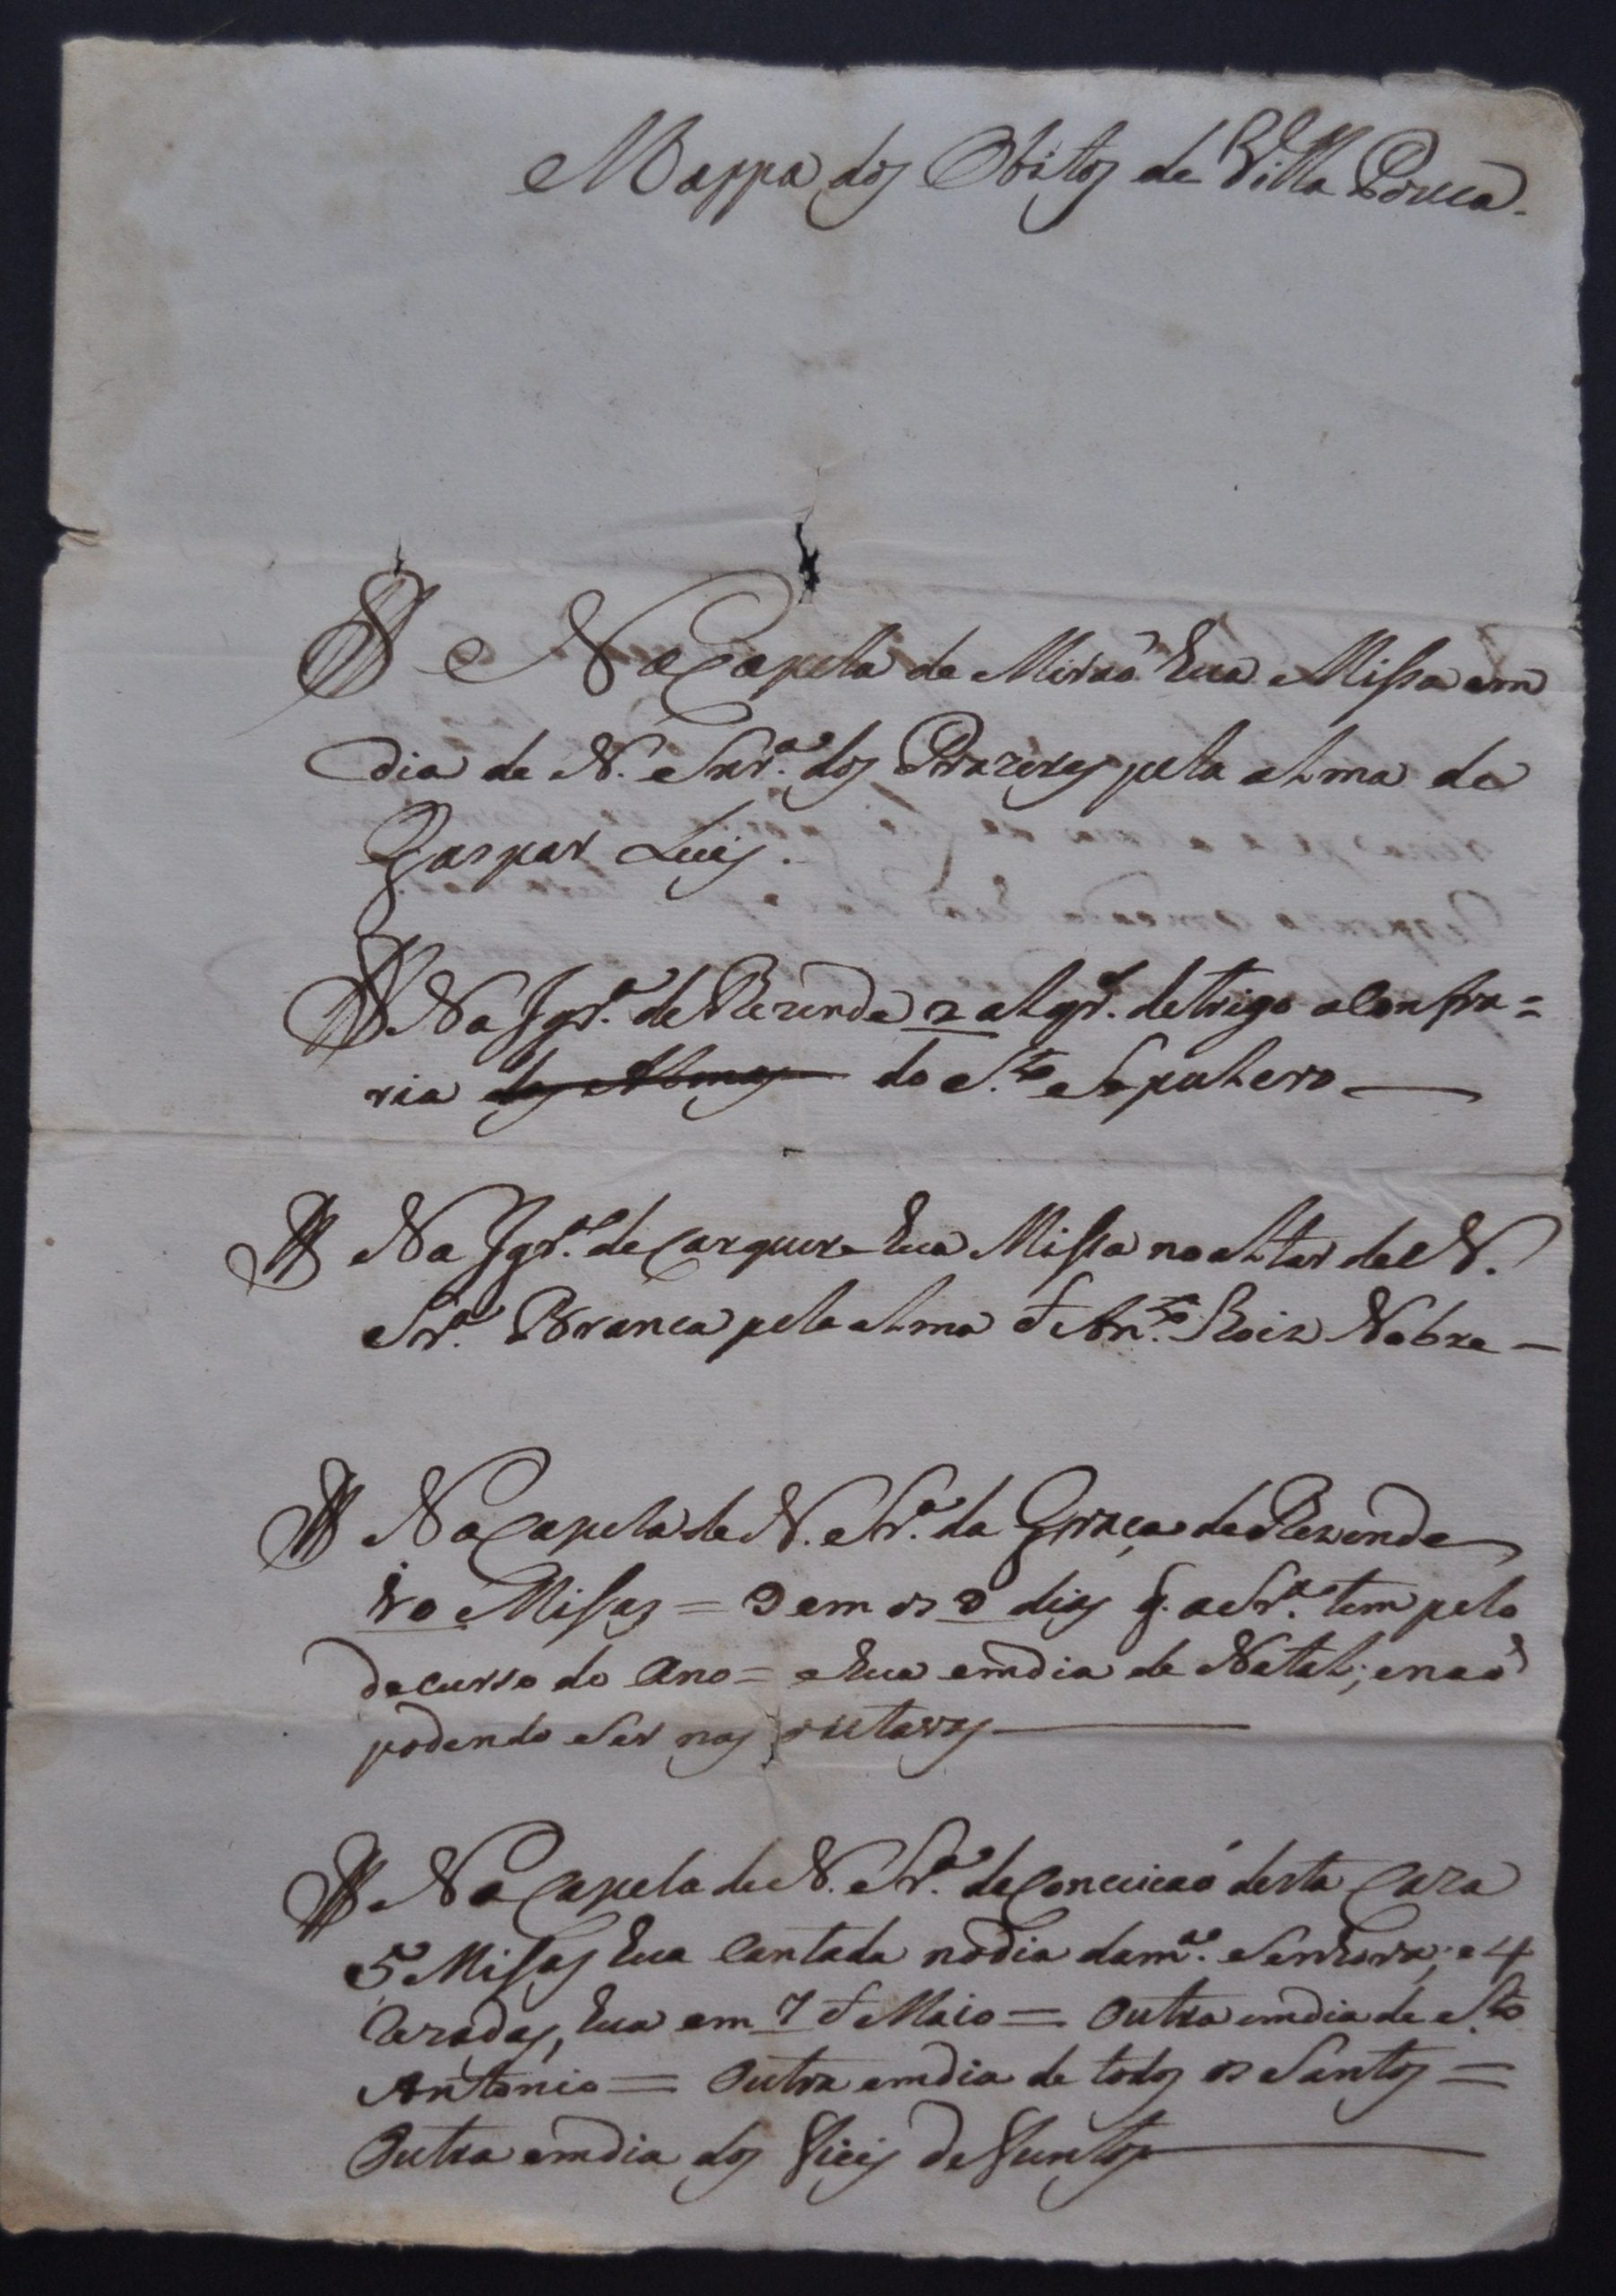 Mappa dos Obitos de Villa Pouca.
Na Capella de Miraõ hua Missa em
dia de N. Snr.ª dos Prazeres pela alma de
Gaspar Luis.
Na Igr.ª de Rezende 2 alqr.s de trigo a Confra=
ria das Almas do S.to Sepulcro
Na Igr.ª de Carquere hua Missa no altar de N.
Sr.ª Branca pela alma d An.to Roiz Nobre
Na Capela de N. Sr.ª da Graça de Rezende
Missas = 9 em os 9 dias q. a Sr.ª tem pelo
decurso do Ano = e hua em dia de Natal; e naõ
podendo ser nas outavas
Na Capela de N. Sr.ª da Conceicaõ desta Caza
5 Missas hua Cantada no dia da m.ª Senhora; e 4
Rezadas, hua em 7 d Maio = Outra em dia de S.to
Antonio = Outra em dia de todos os Santos =
Outra em dia dos fieis defuntos